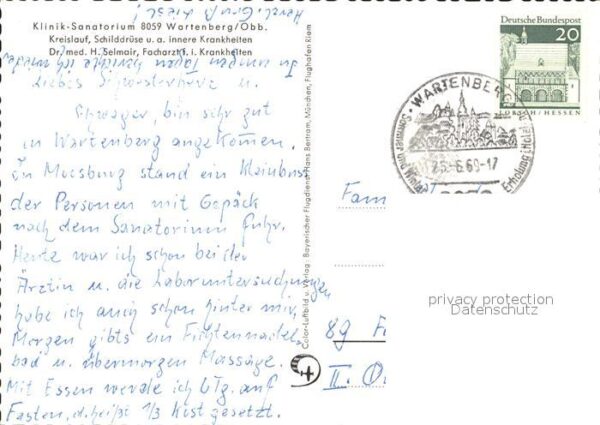 Herzl. Gruß Liesel
Klinik-Sanatorium 8059 Wartenberg/Obb.
Kreislauf, Schilddrüse u. a. innere Krankheiten
Dr. med. H. Selmair, Facharzt f. i. Krankheiten
In einigen Tagen schreibe ich wieder
Liebes u.
Schwager, bin sehr gut
in Wartenberg angekommen.
In Moosburg stand ein Kleinbus
der Personen mit Gepäck
nach dem Sanatorium fuhr.
Heute war ich schon bei der
Ärztin u. die Laboruntersuchungen
habe ich auch schon hinter mir.
Morgen gibts ein Fichtennadel-
bad u. übermorgen Massage.
Mit Essen werde ich tg. auf
Fasten, d. heißt 1/3 Kost gesetzt.
Color-Luftbild u. Verlag: Bayerischer Flugdienst Hans Bertram, München, Flughafen Riem
Deutsche Bundespost
20
LORSCH / HESSEN
WARTENBERG
Sommer und Winter
Erholung
25.-6.69-17
Fam
privacy protection
Datenschutz
89
II.